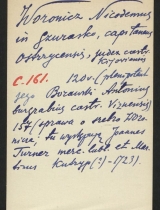 Woronicz Nicodemus
in Szurasko, capitaneus
Ostrycensis, judex castr.
Kijoviensis
C. 161. 1720 (plenipotent
jego Bozawski Antonius
burgrabius castr. Viznensis)
157 (sprawa o srebro Woro-
nicza, tu występują Joannes
Turner merc. lubl. et Mar-
tinus Kubryp (?) - 1723).